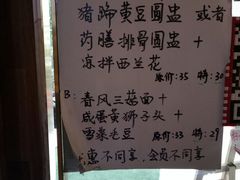 猪蹄黄豆圆盅 或者
药膳排骨圆盅 +
凉拌西兰花
原价:35 特:30
B: 春风三菇面 +
咸蛋黄狮子头 +
雪菜毛豆
原价:33 特:29
惠不同享,会员不同享